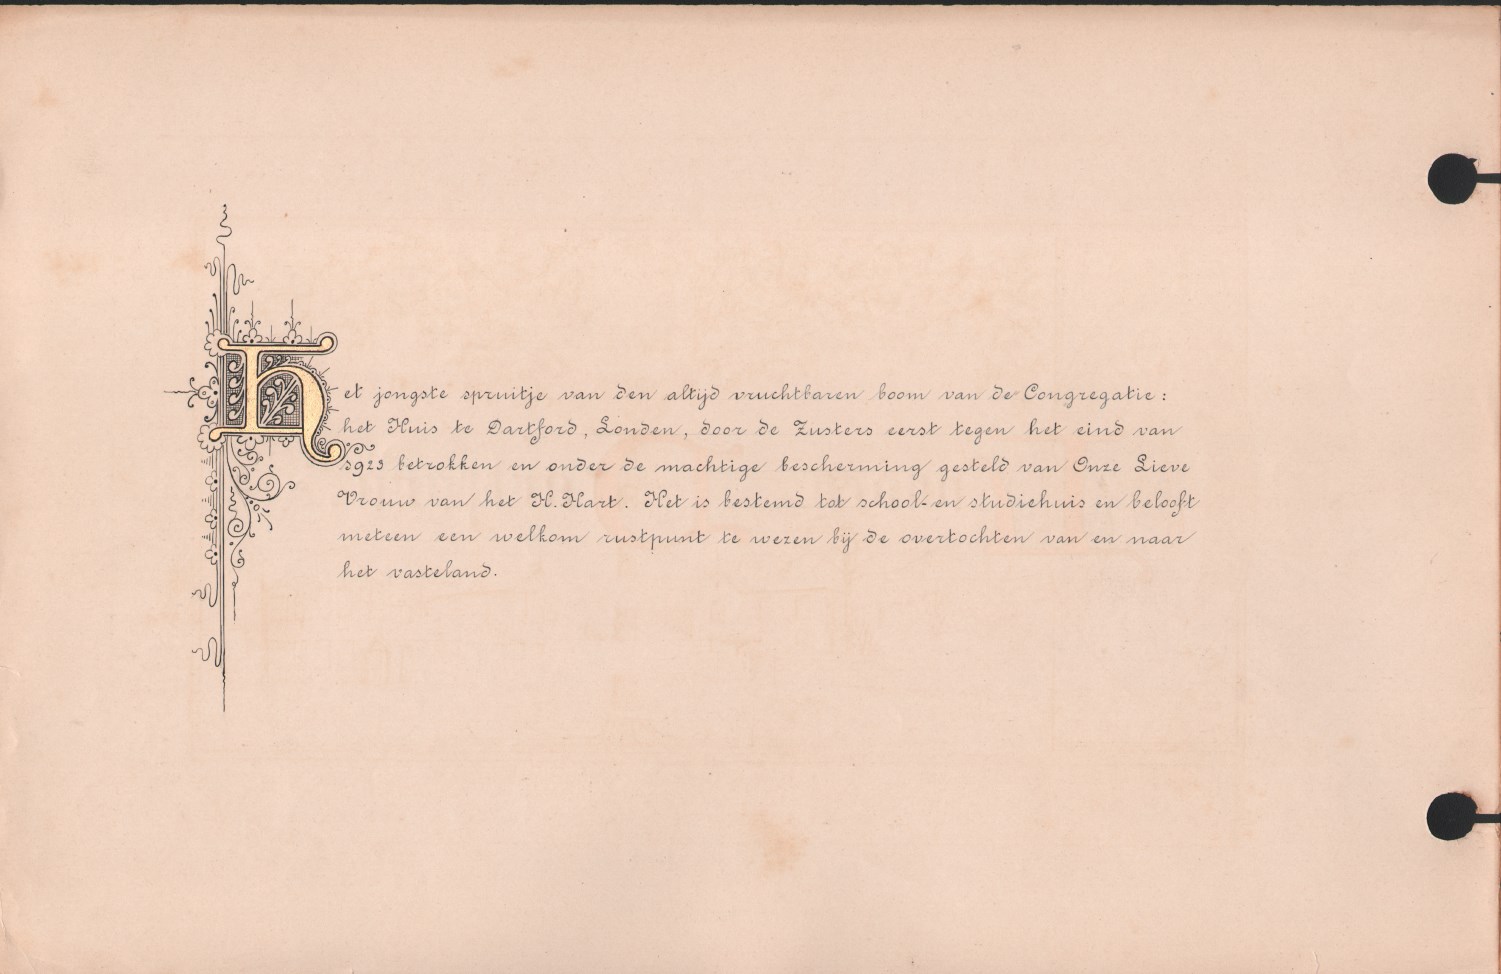 Het jongste spruitje van den altijd vruchtbaren boom van de Congregatie:
het Huis te Dartford, Londen, door de Zusters eerst tegen het eind van
1923 betrokken en onder de machtige bescherming gesteld van Onze Lieve
Vrouw van het H. Hart. Het is bestemd tot school- en studiehuis en belooft
meteen een welkom rustpunt te wezen bij de overtochten van en naar
het vasteland.